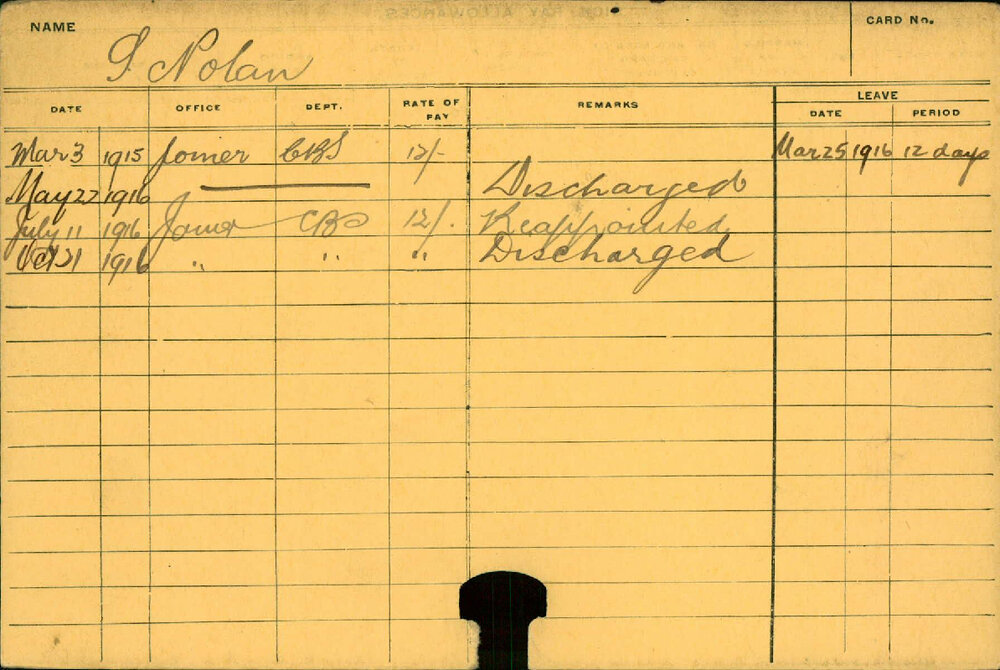 NAME
CARD No.
S Nolan
DATE OFFICE DEPT. RATE OF PAY REMARKS LEAVE
DATE PERIOD
Mar 3 1915 Joiner CBS 12/- Mar 25 1916 12 days
May 22 1916 Discharged
July 11 1916 Joiner CBS 12/- Reappointed
Oct 21 1916 " " " Discharged